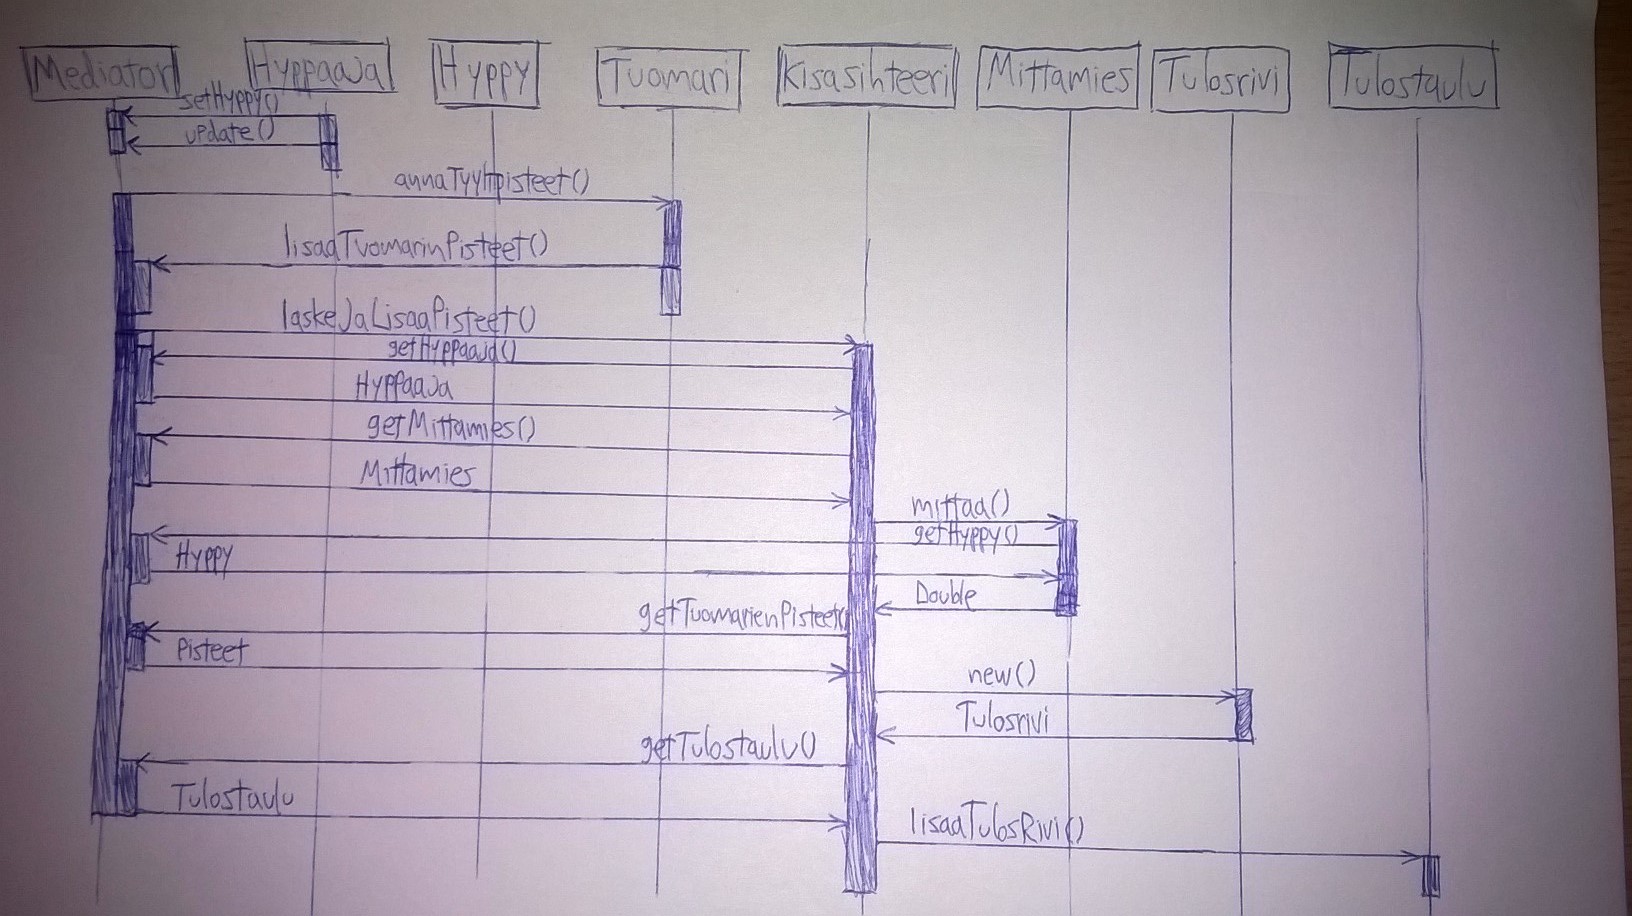 Mediator Hyppaaja Hyppy Tuomari Kisasihteeri Mittamies Tulosrivi Tulostaulu
setHyppy()
update()
annaTyylipisteet()
lisaaTuomarinPisteet()
laskeJaLisaaPisteet()
getHyppaaja()
Hyppaaja
getMittamies()
Mittamies
mittaa()
getHyppy()
Hyppy
Double
getTuomarienPisteet()
Pisteet
new()
Tulosrivi
getTulostaulu()
Tulostaulu
lisaaTulosRivi()